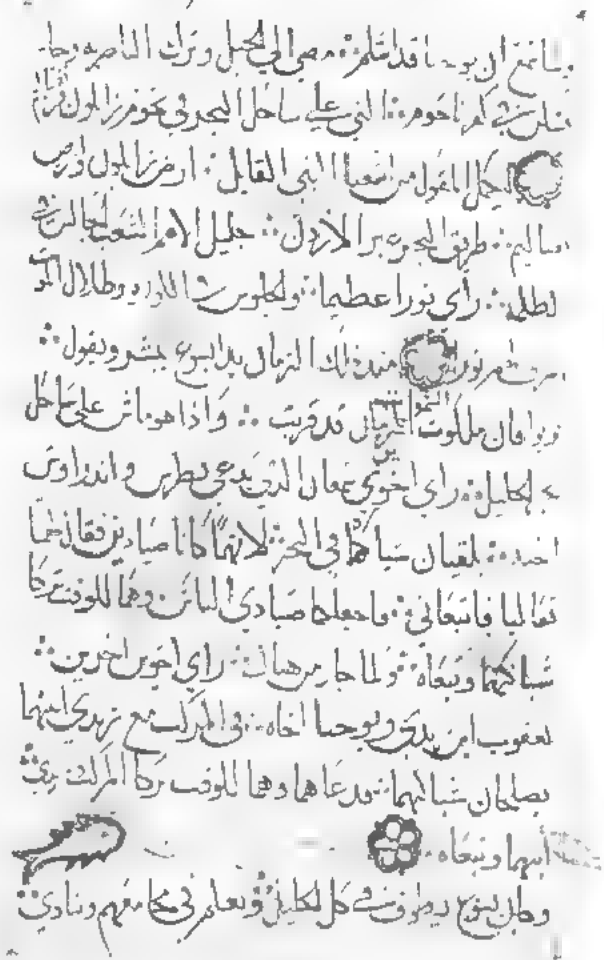 سمع ان يوحنا قد اسلم ∴ مضي الي الجبل وترك الناصره وجا
فسكن في كفرناحوم ∴ التي علي ساحل البحر في تخوم زابلون
ليكمل المقول من اشعيا النبي القايل ∴ ارض زابلون وارض
نفتاليم ∴ طريق البحر عبر الاردن ∴ جليل الامم الشعب الجالس في
الظلمه ∴ راي نورا عظيما ∴ والجلوس في الكوره وظلال الموت
اشرق لهم نور منذ ذلك الزمان بدا يسوع يبشر ويقول ∴
توبوا فان ملكوت قد قربت ∴ واذا هو ماش علي ساحل
بحر الجليل ∴ راي اخوين سمعان الذي يدعي بطرس واندراوس
اخيه ∴ يلقيان شباكهما في البحر ∴ لانهما كانا صيادين فقال لهما
تعاليا فاتبعاني ∴ فاجعلكما صيادي الناس ∴ وهما للوقت تركا
شباكهما وتبعاه ∴ ولما جاز من هناك ∴ راي اخوين اخرين ∴
يعقوب ابن زبدي ويوحنا اخاه ∴ في المركب مع زبدي ابيهما
يصلحان شباكهما ∴ فدعاهما وهما للوقت تركا المركب
ابيهما وتبعاه ∴
وكان يسوع يطوف في كل الجليل ∴ ويعلم في مجامعهم وينادي ∴